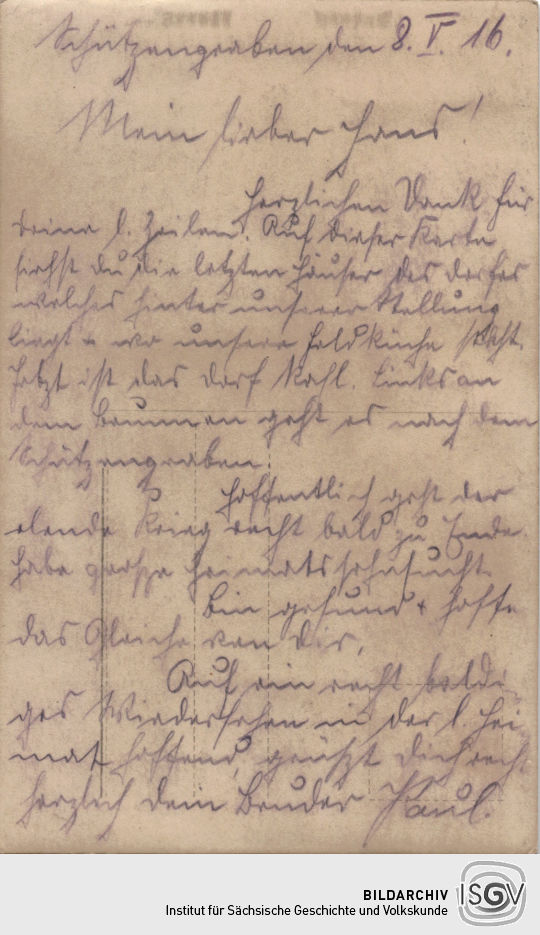 Schützengraben den 8. V. 16.
Mein lieber Hans!
Herzlichen Dank für
deine l. Zeilen. Auf dieser Karte
siehst du die letzten Häuser des Dorfes
welches hinter unserer Stellung
liegt u. wo unsere Feldküche steht.
Jetzt ist das Dorf kahl. Links an
dem Brunnen geht es nach dem
Schützengraben.
Hoffentlich geht der
elende Krieg recht bald zu Ende.
Habe grosse Heimatssehnsucht.
Bin gesund + hoffe
das Gleiche von Dir.
Auf ein recht baldi-
ges Wiedersehen in der l. Hei
mat hoffend, grüßt Dich rech.
herzlich dein Bruder Paul.
BILDARCHIV
Institut für Sächsische Geschichte und Volkskunde
ISGV